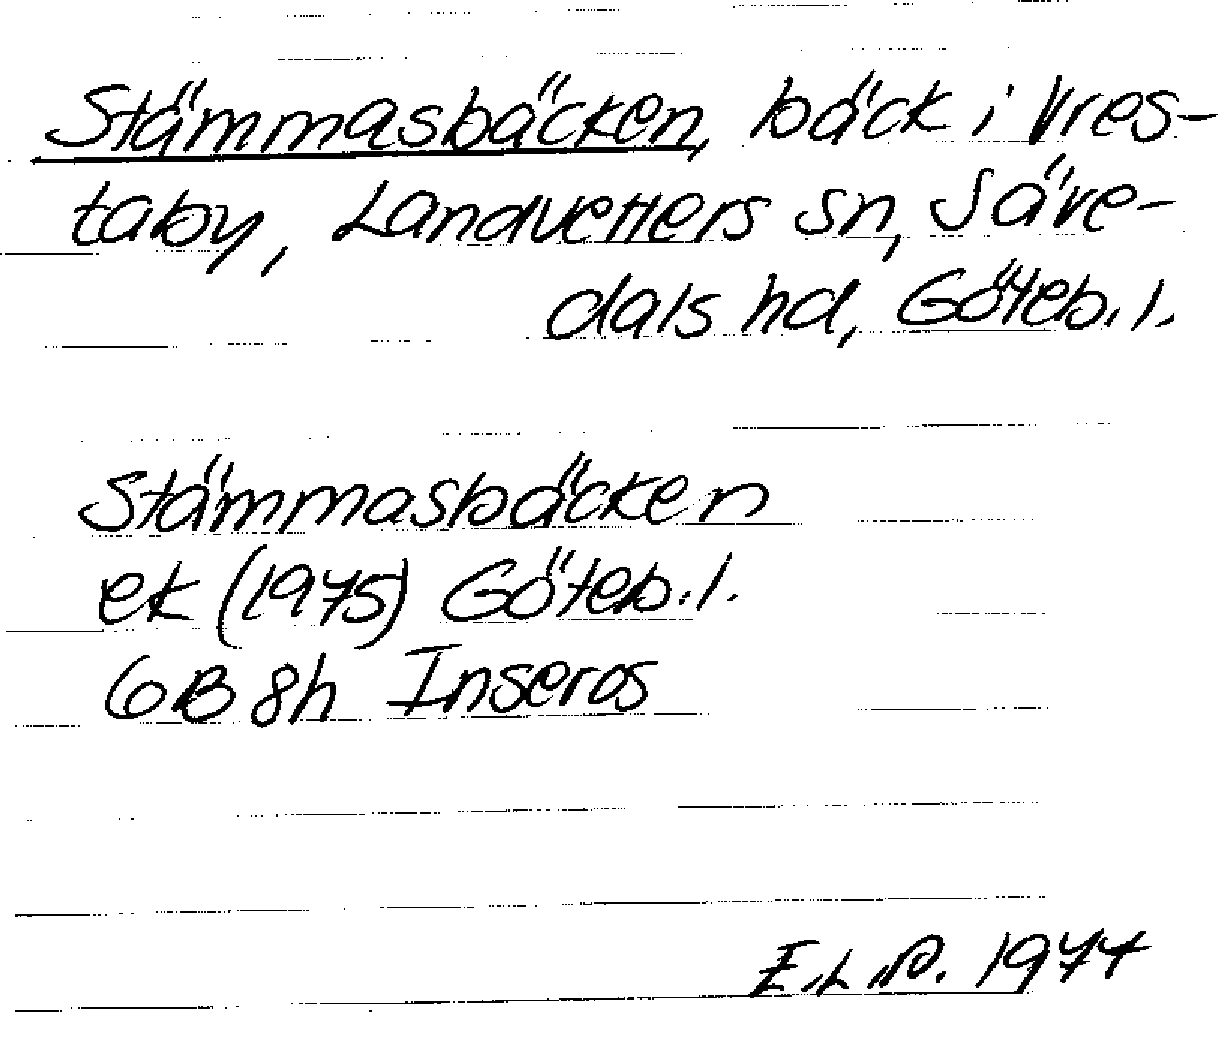 Stämmasbäcken, bäck i Vres-
taby, Landvetters sn, Säve-
dals hd, Göteb. l.
Stämmasbäcken
ek (1975) Göteb. l.
6B 8h Inseros
E.L.P. 1977